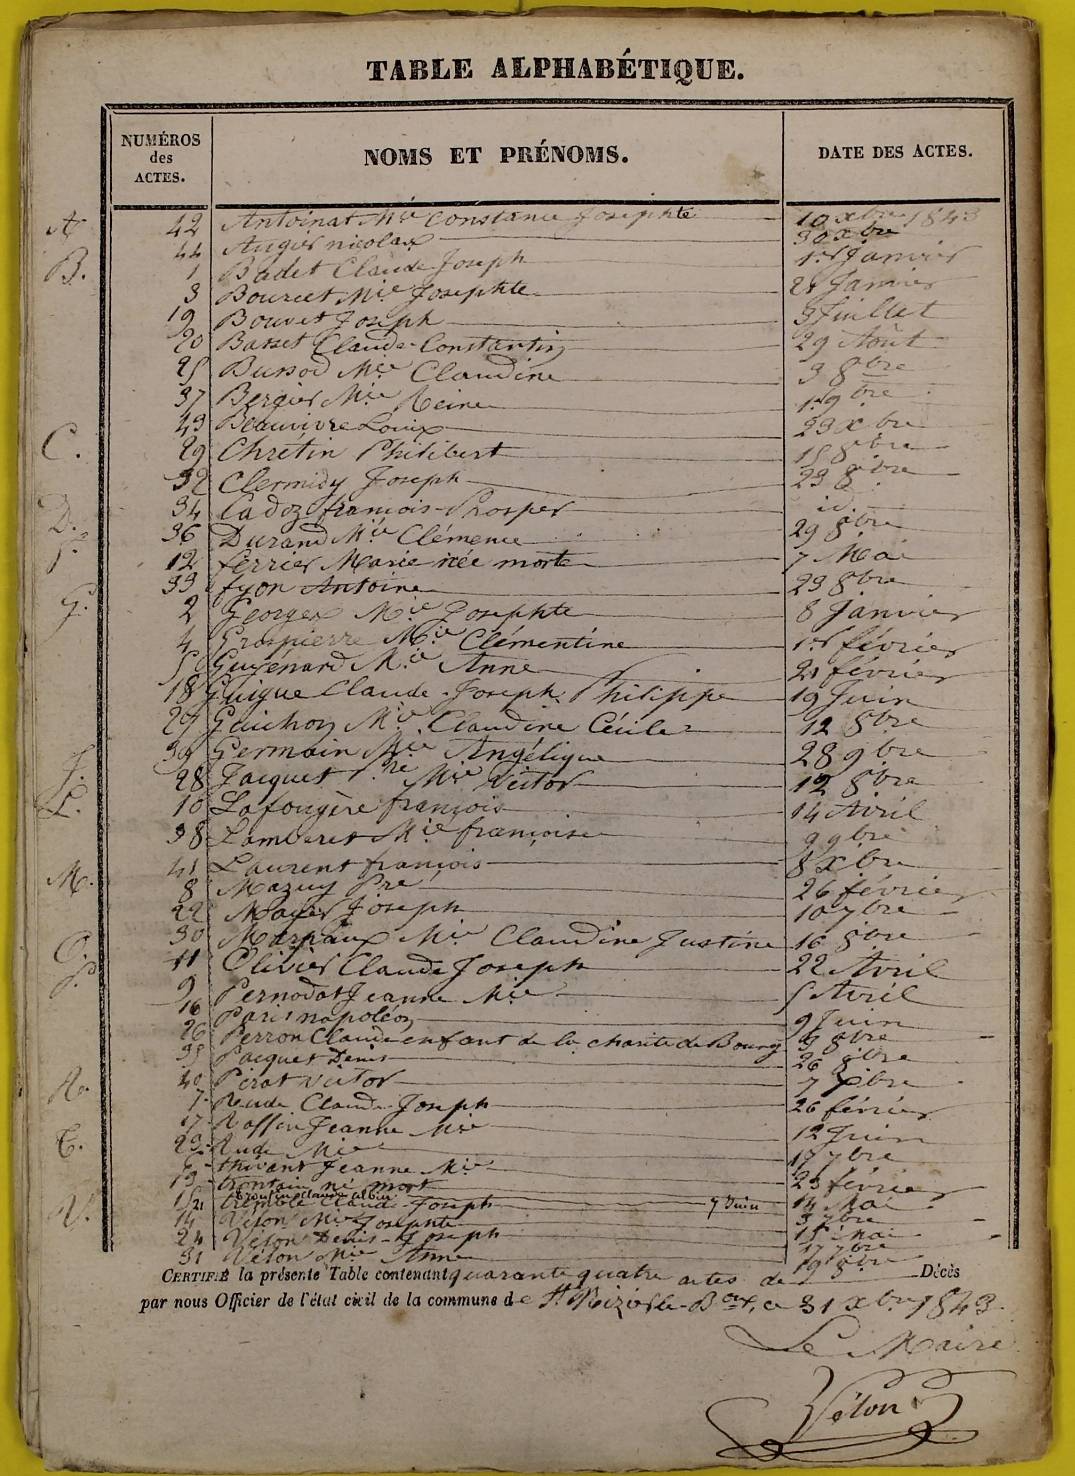 TABLE ALPHABÉTIQUE.
NUMÉROS des ACTES. NOMS ET PRÉNOMS. DATE DES ACTES.
A 42 Antoinat Mie Constance Josephte 10 xbre 1843
44 Augier nicolas 30 xbre
B. 1 Badet Claude Joseph 1er Janvier
3 Bourcet Mie Josephte 28 Janvier
19 Bouvet Joseph 3 Juillet
20 Basset Claude Constantin 29 Août
25 Bussod Mie Claudine 3 8bre
37 Bergier Mie Reine 1er 9bre
43 Beauvivre Louis 23 xbre
C. 29 Chrétin Philibert 15 8bre
32 Clermidy Joseph 23 8bre
34 Cadoz françois-Prosper id.
D. 36 Durand Mie Clémence 29 8bre
f. 12 ferrier Marie née morte 7 Mai
33 fyon Antoine 23 8bre
G. 2 Georges Mie Josephte 8 Janvier
4 Grospierre Mie Clémentine 1er février
5 Guyénard Mie Anne 21 février
18 Guigue Claude-Joseph Philippe 19 Juin
27 Guichon Mie Claudine Cécile 12 8bre
39 Germain Mie Angélique 28 9bre
J. 28 Jacquet Mie Victor 12 8bre
L. 10 Lafougère françois 14 Avril
38 Lamberet Mie françoise 9 9bre
41 Laurent françois 8 xbre
M. 8 Mazuy Pre 26 février
22 Mayer Joseph 10 7bre
30 Marpaux Mie Claudine Justine 16 8bre
O. 11 Olivier Claude Joseph 22 Avril
P. 9 Pernodat Jeanne Mie 5 Avril
16 Paris napoléon 9 Juin
26 Perron Claude enfant de la charité de Bourg 8bre
35 Pacquet Denis 26 8bre
40 Pirat Victor 7 xbre
R. 7 Rude Claude Joseph 26 février
17 Raffin Jeanne Mie 12 Juin
23 Rude Mie 17 7bre
T. 6 thivant Jeanne Mie 23 février
13 trontain né mort 14 Mai
15 Claude 7 Juin
21 tremble Claude Joseph 3 7bre
V. 14 Vélon Mie Josephte 15 mai
24 Vélon Denis-Joseph 17 7bre
31 Vélon Mie Anne 19 8bre
CERTIFIÉ la présente Table contenant quarante quatre actes de Décès
par nous Officier de l'état civil de la commune de St. Nizier le-Bout, ce 31 xbre 1843.
Le Maire
Vélon